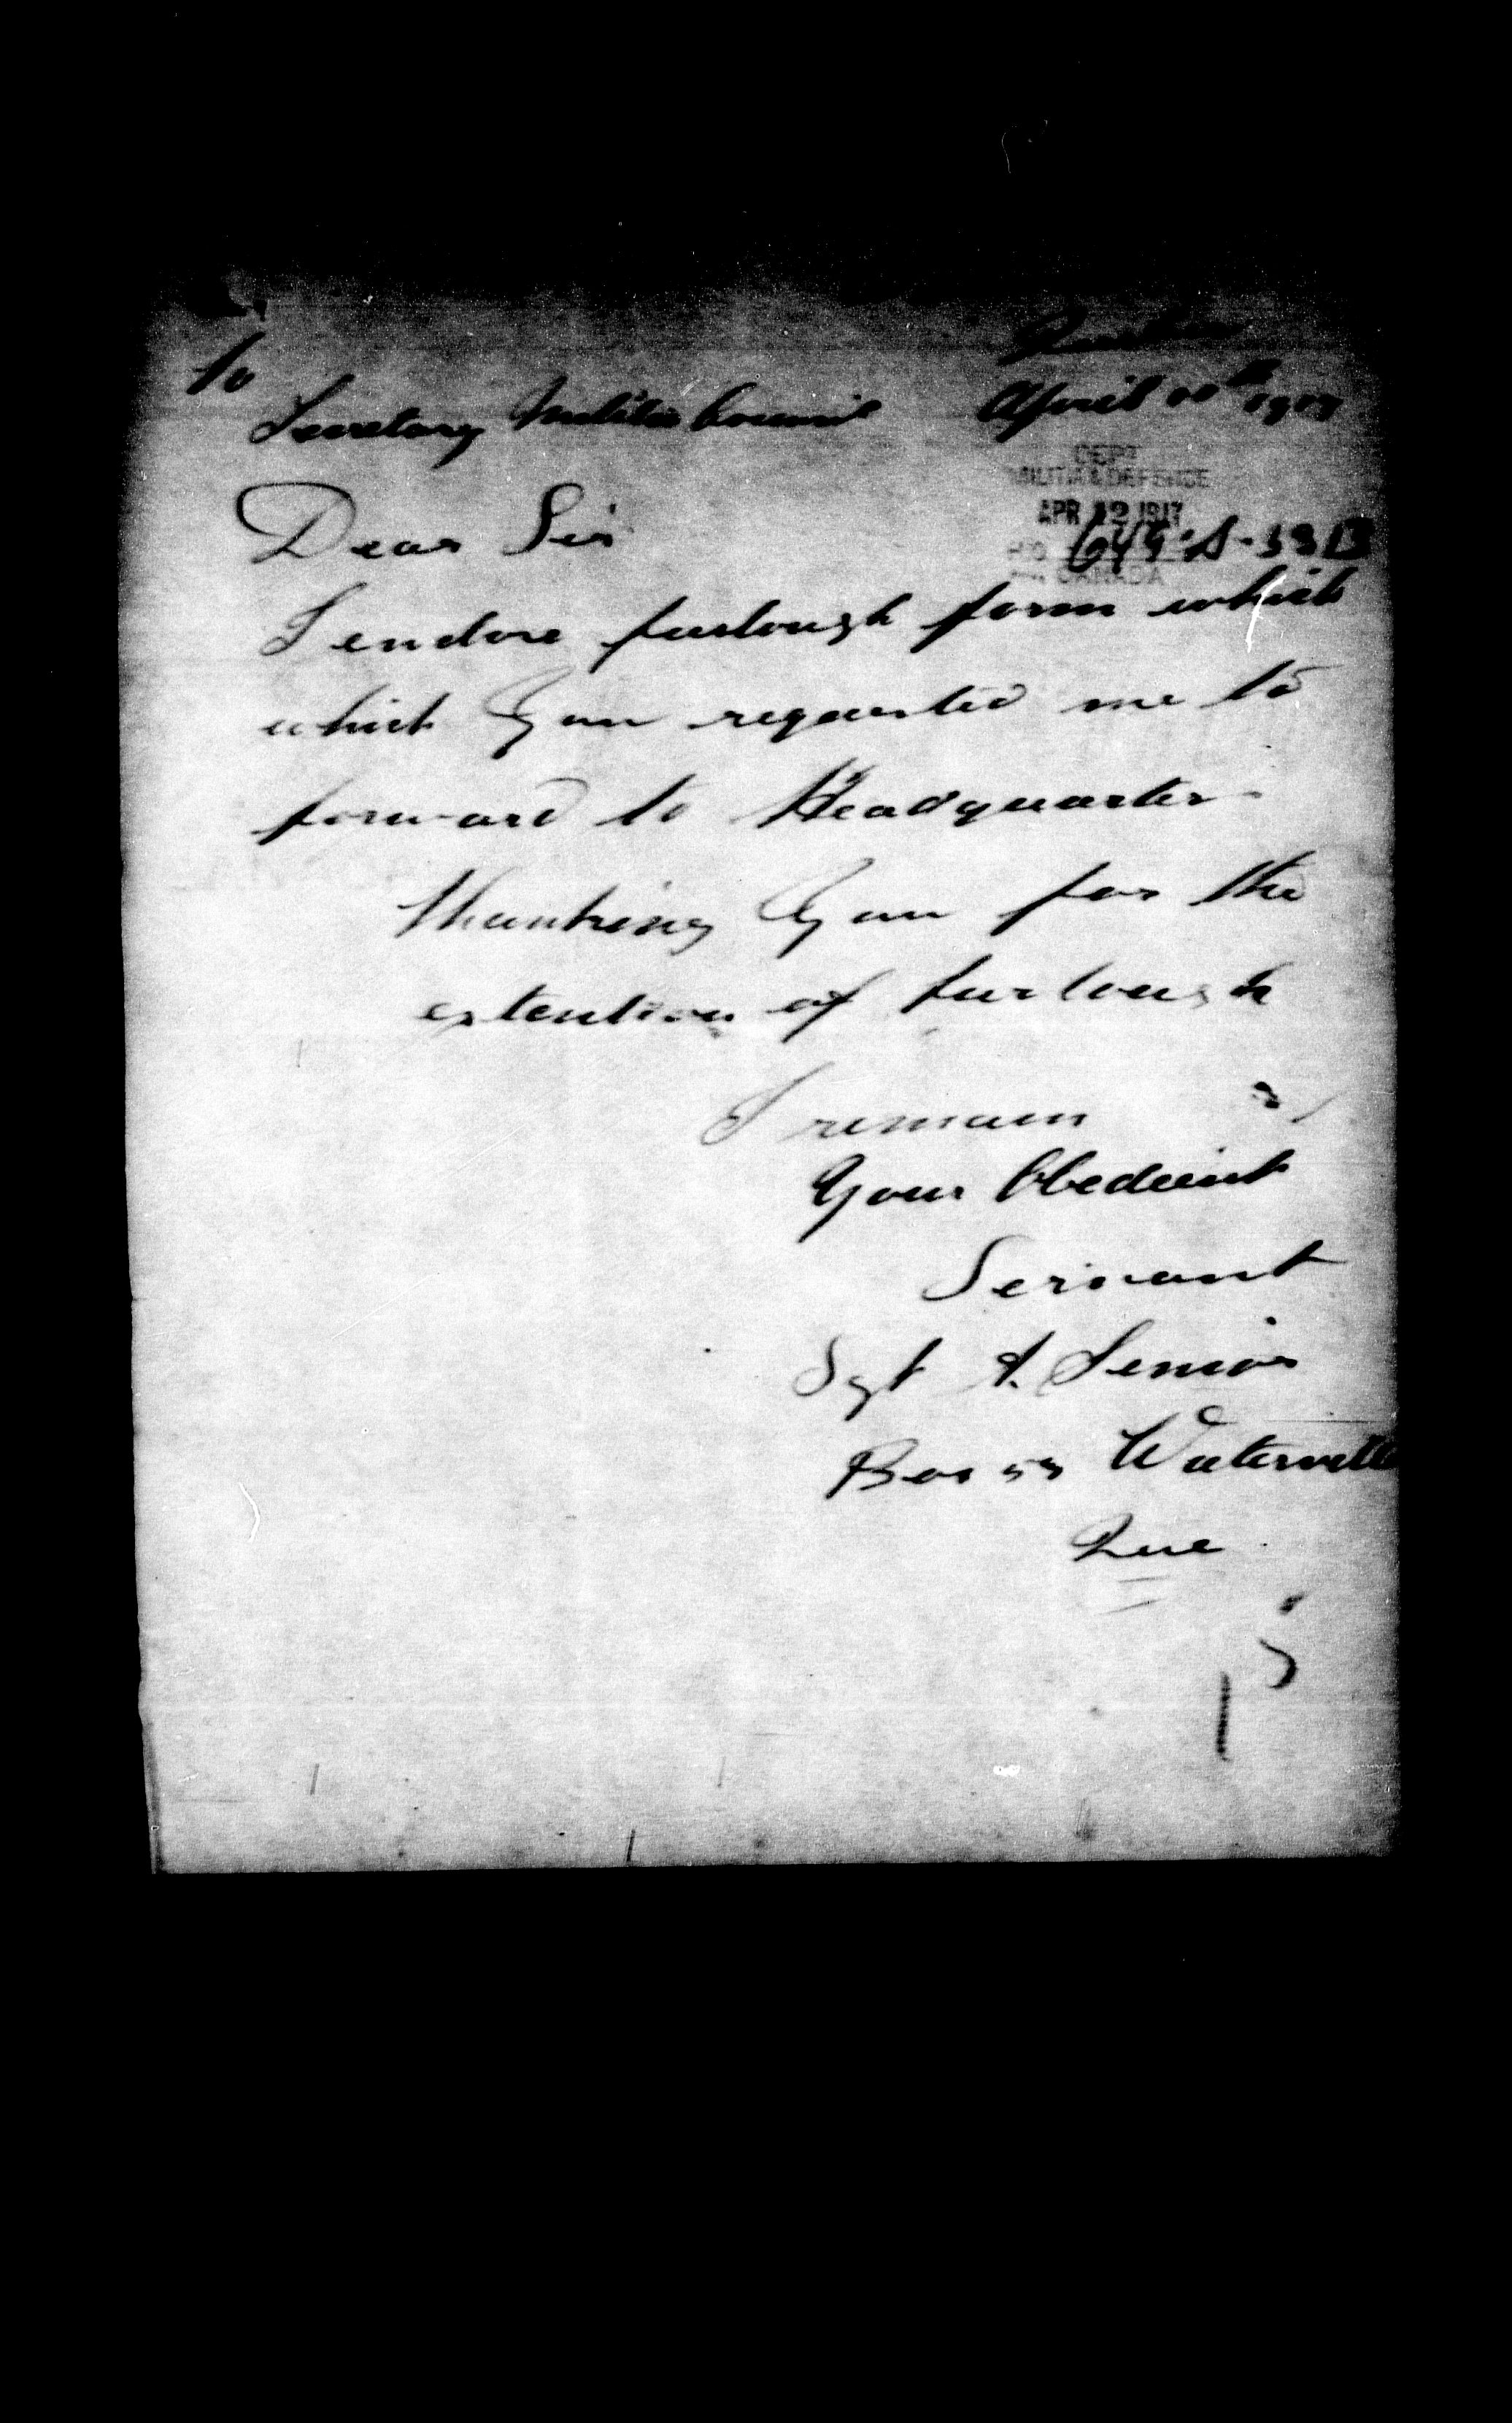 To
Secretary Militia Council April 10th 1917
DEPT
MILITIA & DEFENSE
APR 12 1917
CANADA
Dear Sir
I endore furlough form which
which You requested me to
forward to Headquarters
Thanking You for the
extention of furlough
I remain
Your Obedient
Servant
Sgt A. Senior
Box 53 Waterville
Que